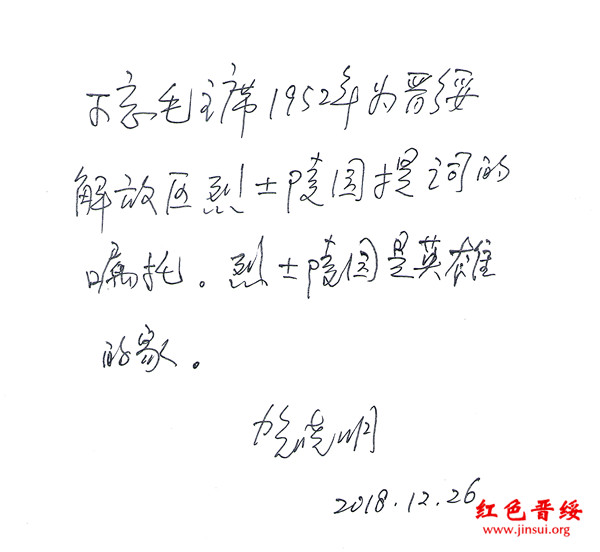 不忘毛主席1952年为晋绥
解放区烈士陵园提词的
嘱托。烈士陵园是英雄
的家。
晓明
2018.12.26
红色晋绥
www.jinsui.org